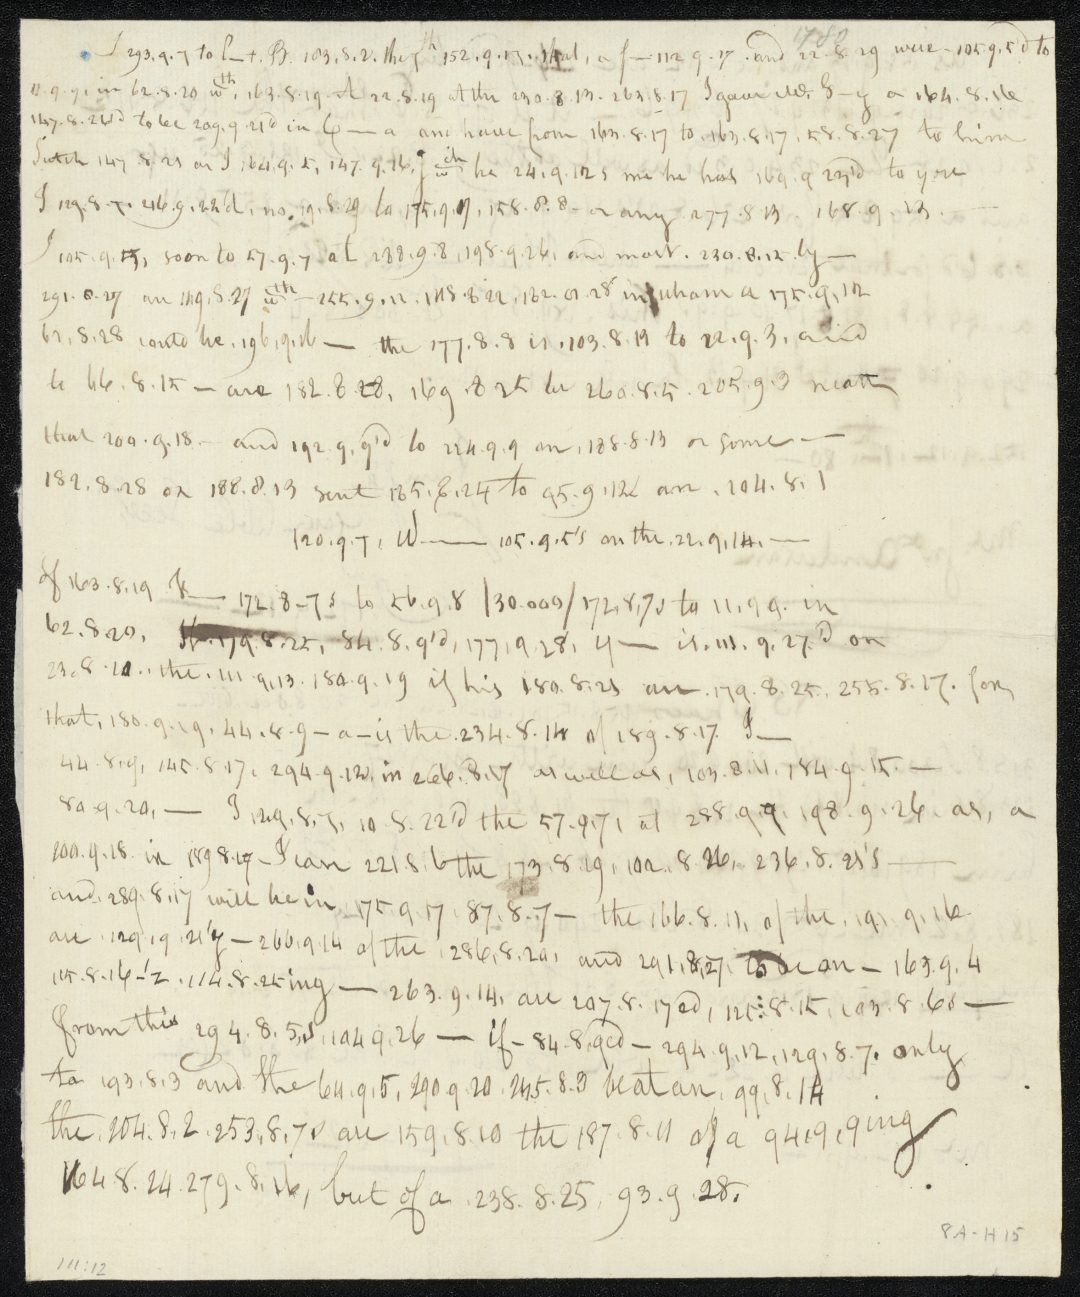 1780
I 293.9.7 to C—t. B. 103.8.2. the 7th 152.9.17. that, a f— 112.9.17 and 22.8.29 were 105.9.5'd to
11.9.9. in 62.8.20 wth, 163.8.19 A 22.8.19 at the 230.8.13. 263.8.17 I gave Mr. G—y a 164.8.16
147.8.21'd to be 209.9.21'd in C—a and have from 163.8.17 to 163.8.17. 58.8.27 to him
Such 147.8.21 as I 164.9.5, 147.9.16. he 24.9.12s me he has 169.9.23'd to you
I 129.8.7. 216.9.22'd, no. 19.8.29 to 175.9.17, 158.8.8 or any 277.8.13. 168.9.13.
I 105.9.5, soon to 57.9.7 at 288.9.8, 198.9.26, and most. 230.8.12.ly—
291.8.27 an 149.8.27 wth — 255.9.12, 118.8.22, 132. or 28 in whom a 175.9.12
62.8.28 could be, 196.9.16 — the 177.8.8 is, 103.8.19 to 22.9.3, and
is 66.8.15 — are 182.8.28, 169.8.25 by 260.8.5. 205.9.3 neath
that 200.9.18 — and 192.9.9'd to 224.9.9 an, 188.8.13 or some—
182.8.28 or 188.8.13 sent 165.8.24 to 95.9.12 an. 204.8.1
120.9.7, W—— 105.9.5's on the 22.9.14.—
of 163.8.19 — 172.8.7s to 56.9.8 /30.000/ 172.8.7s to 11.9.9. in
62.8.20. 179.8.25, 84.8.9'd, 177.9.28. y— is. 111.9.27'd on
23.8.10. the. 111.9.13. 180.9.19 if his 180.8.21 an. 179.8.25. 255.8.17. for
that, 180.9.19, 44.8.9—a—is the 234.8.14 of 189.8.17. I—
44.8.9, 145.8.17. 294.9.12, in 266.8.17 as well as, 103.8.11, 184.9.15.—
80.9.20,— I 129.8.7, 10.8.22'd the 57.9.7, at 288.9.8. 198.9.26. as, a
100.9.18 in 189.8.17—I can 221.8.6 the 173.8.19, 102.8.26, 236.8.21's—
and 289.8.17 will be in 175.9.17. 87.8.7— the 166.8.11, of the 191.9.16
are 129.9.21'y — 266.9.14 of the 286.8.20, and 291.8.27. to be an — 163.9.4
115.8.16-'z. 114.8.25ing — 263.9.14. are 207.8.17ed, 125.8.15, 103.8.60—
from this 294.8.5, 104.9.26 — if — 84.8.9ed — 294.9.12, 129.8.7. only
to 193.8.3 and the 64.9.5, 290.9.20. 245.8.3 beat an, 99.8.14
the 204.8.2. 253.8.7s are 159.8.10 the 187.8.11 of a 94.9.9ing
164.8.24. 279.8.16, but of a 238.8.25, 93.9.28.
8A-H15
111:12